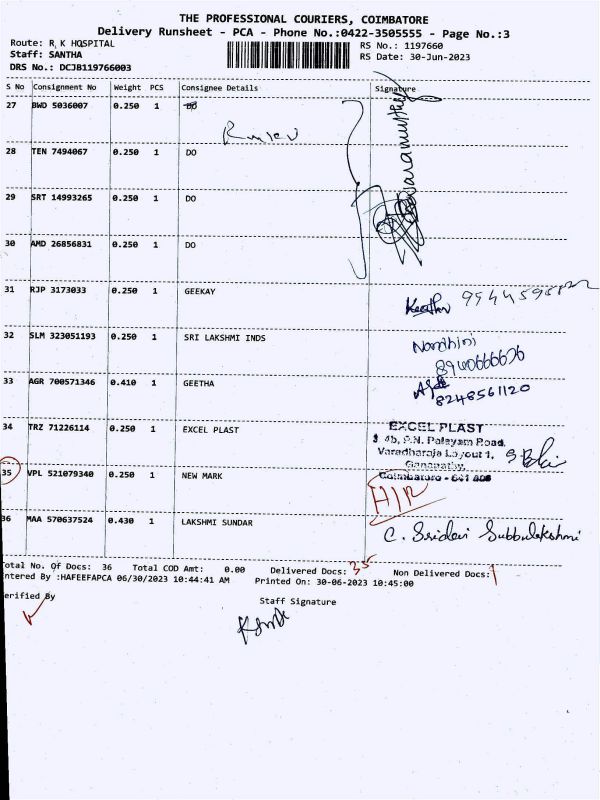 THE PROFESSIONAL COURIERS, COIMBATORE
Delivery Runsheet - PCA - Phone No.:0422-3505555 - Page No.:3
Route: R K HOSPITAL
RS No.: 1197660
Staff: SANTHA
RS Date: 30-Jun-2023
DRS No.: DCJB119766003
S No Consignment No Weight PCS Consignee Details Signature
27 BWD 5036007 0.250 1 DO
28 TEN 7494067 0.250 1 DO
29 SRT 14993265 0.250 1 DO
30 AMD 26856831 0.250 1 DO
31 RJP 3173033 0.250 1 GEEKAY
32 SLM 323051193 0.250 1 SRI LAKSHMI INDS
Nandhini
8940666676
33 AGR 700571346 0.410 1 GEETHA
8248561120
34 TRZ 71226114 0.250 1 EXCEL PLAST
EXCEL PLAST
3 4b, P.N. Palayam Road,
Varadharaja Layout 1,
Ganapathy,
Coimbatore - 641
35 VPL 521079340 0.250 1 NEW MARK
36 MAA 570637524 0.430 1 LAKSHMI SUNDAR
C. Sridevi Subbulakshmi
Total No. Of Docs: 36 Total COD Amt: 0.00 Delivered Docs: 35 Non Delivered Docs: 1
ntered By :HAFEEFAPCA 06/30/2023 10:44:41 AM Printed On: 30-06-2023 10:45:00
erified By
Staff Signature